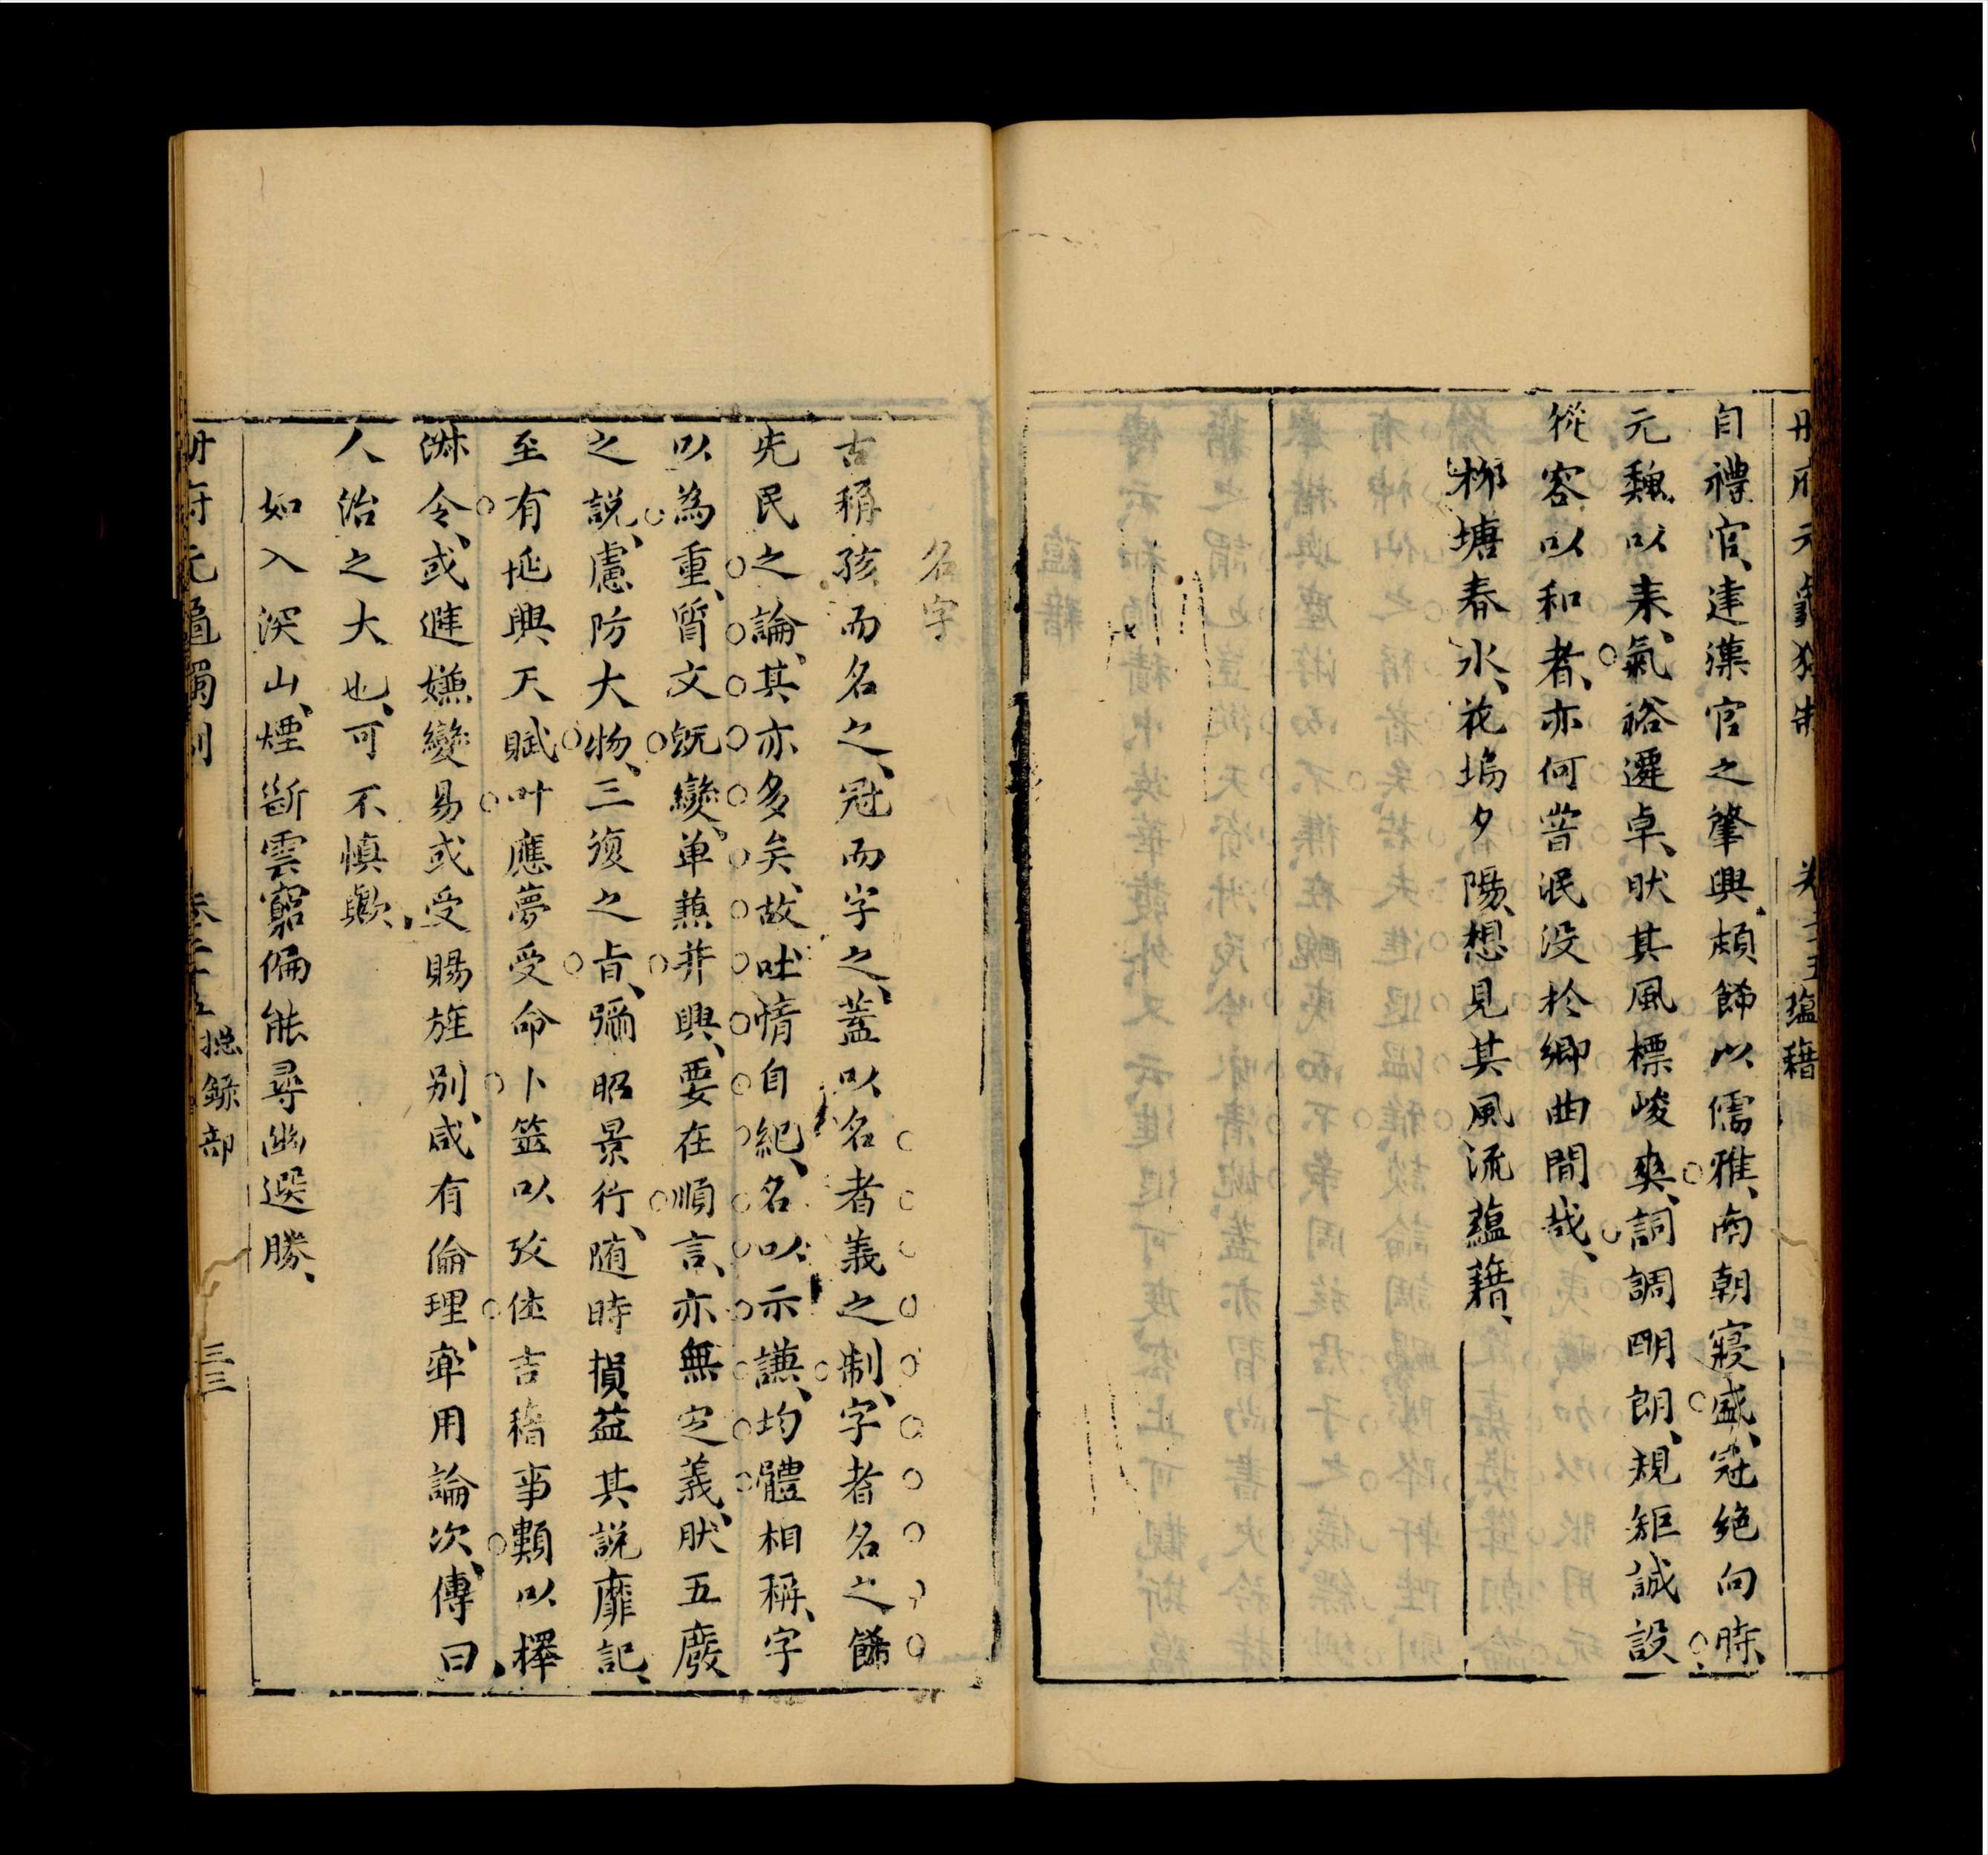 冊府元龜獨制　卷二十五蘊藉
自禮官、達漢官之肇興、頗飾以儒雅、南朝寖盛、冠絶向時、
元魏以來、氣裕遷卓、狀其風標峻爽、詞調明朗、規矩誠設
從容以和者、亦何嘗泯没於鄉曲間哉、
柳塘春水、花塢夕陽、想見其風流蘊藉、
名字
古稱孩而名之、冠而字之、蓋以名者義之制、字者名之飾
先民之論、其亦多矣、故吐情自紀、名以示謙、均體相稱、字
以為重、質文既變、單兼并興、要在順言、亦無定義、肰五廢
之説、慮防大物、三復之旨、彌昭景行、随時損益、其説靡記、
至有延興天賦、叶應夢受、命卜筮以攷、隹吉稽事類以擇
淋令、或避嫌變易、或受賜旌别、咸有倫理、率用論次、傳曰、
人治之大也、可不慎歟、
如入深山、煙斷雲窮、偏能尋幽選勝、
冊府元龜獨制　卷二十五　總錄部　三三